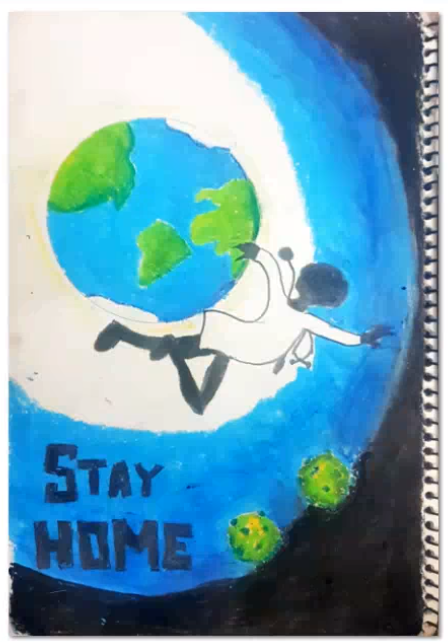 STAY
HOME